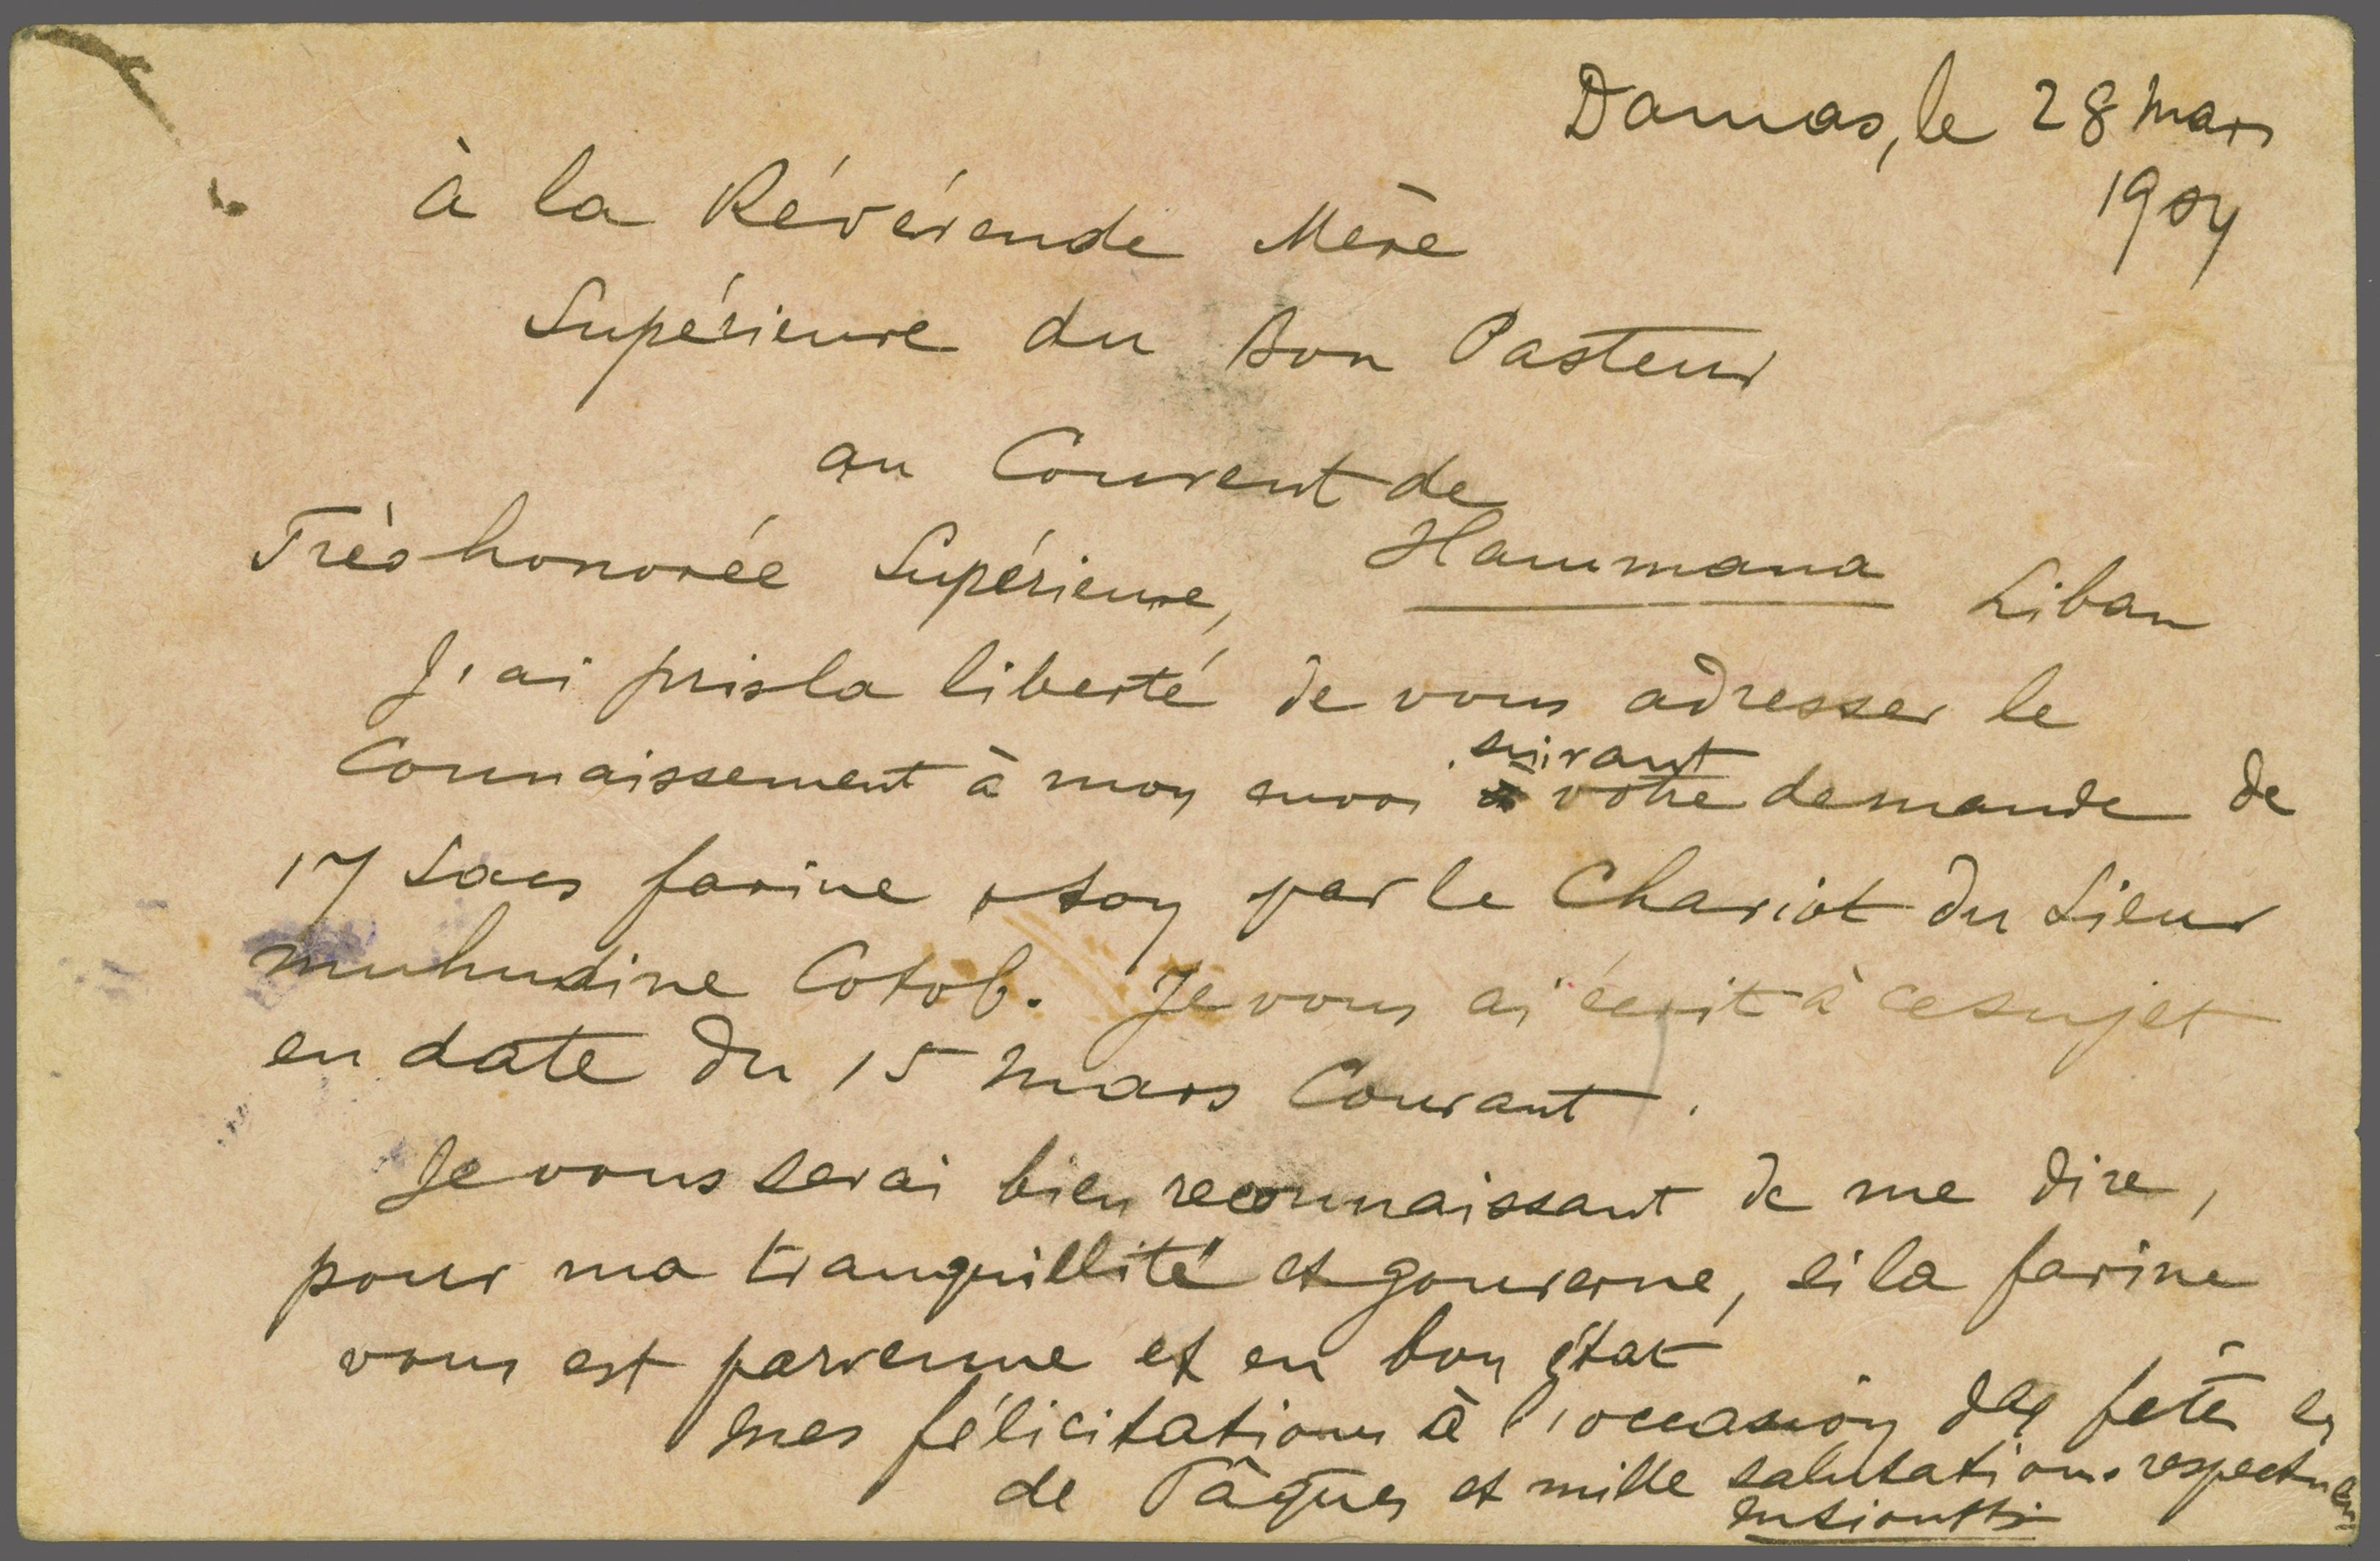 Damas, le 28 Mars
1904
à la Révérende Mère
Supérieure du Bon Pasteur
au Couvent de
Hammana Liban
Très honorée Supérieure,
J'ai pris la liberté de vous adresser le
Connaissement à mon envoi suivant votre demande de
17 sacs farine par le Chariot du Sieur
Muhudine Cotob. Je vous ai écrit à ce sujet
en date du 15 Mars Courant.
Je vous serai bien reconnaissant de me dire,
pour ma tranquillité et gouverne, si la farine
vous est parvenue et en bon état
Mes félicitations à l'occasion des fêtes
de Pâques et mille salutations respectueuses